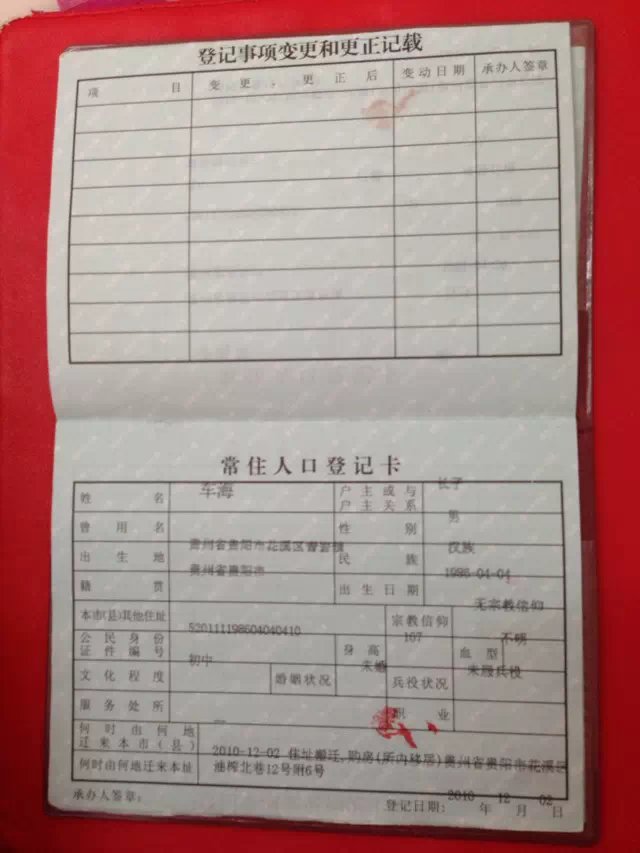 登记事项变更和更正记载
项 目 变更、更正后 变动日期 承办人签章
常住人口登记卡
姓名 车海 户主或与户主关系 长子
曾用名 性别 男
出生地 贵州省贵阳市花溪区 民族 汉族
籍贯 贵州省贵阳市 出生日期 1986-04-04
本市(县)其他住址 宗教信仰 无宗教信仰
公民身份证件编号 520111198604040410 身高 167 血型 不明
文化程度 初中 婚姻状况 未婚 兵役状况 未服兵役
服务处所 职业
何时由何地迁来本市(县)
何时由何地迁来本址 2010-12-02 住址搬迁、购房(所内移居)贵州省贵阳市花溪区
油榨北巷12号附6号
承办人签章: 登记日期: 2010 年 12 月 02 日